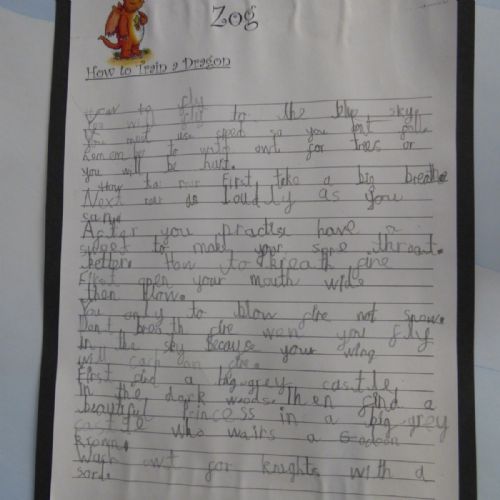 Zog
How to Train a Dragon
to fly
You will fly to the blue sky.
You must use speed so you dont fall.
Remember to watch owt for trees or
you will be hurt.
How to roar First take a big breathe
Next roar as loudly as you
can.
After you practise have a
sweet to make your sore throat
better. How to breath fire
First open your mouth wide
then blow.
You only to blow fire not snow.
Dont breath fire wen you fly
in the sky because your wing
will cach on fire.
First find a big grey castle
in the dark woods. Then find a
beautiful princess in a big grey
castle who wairs a
Wach owt for knights with a
sord.